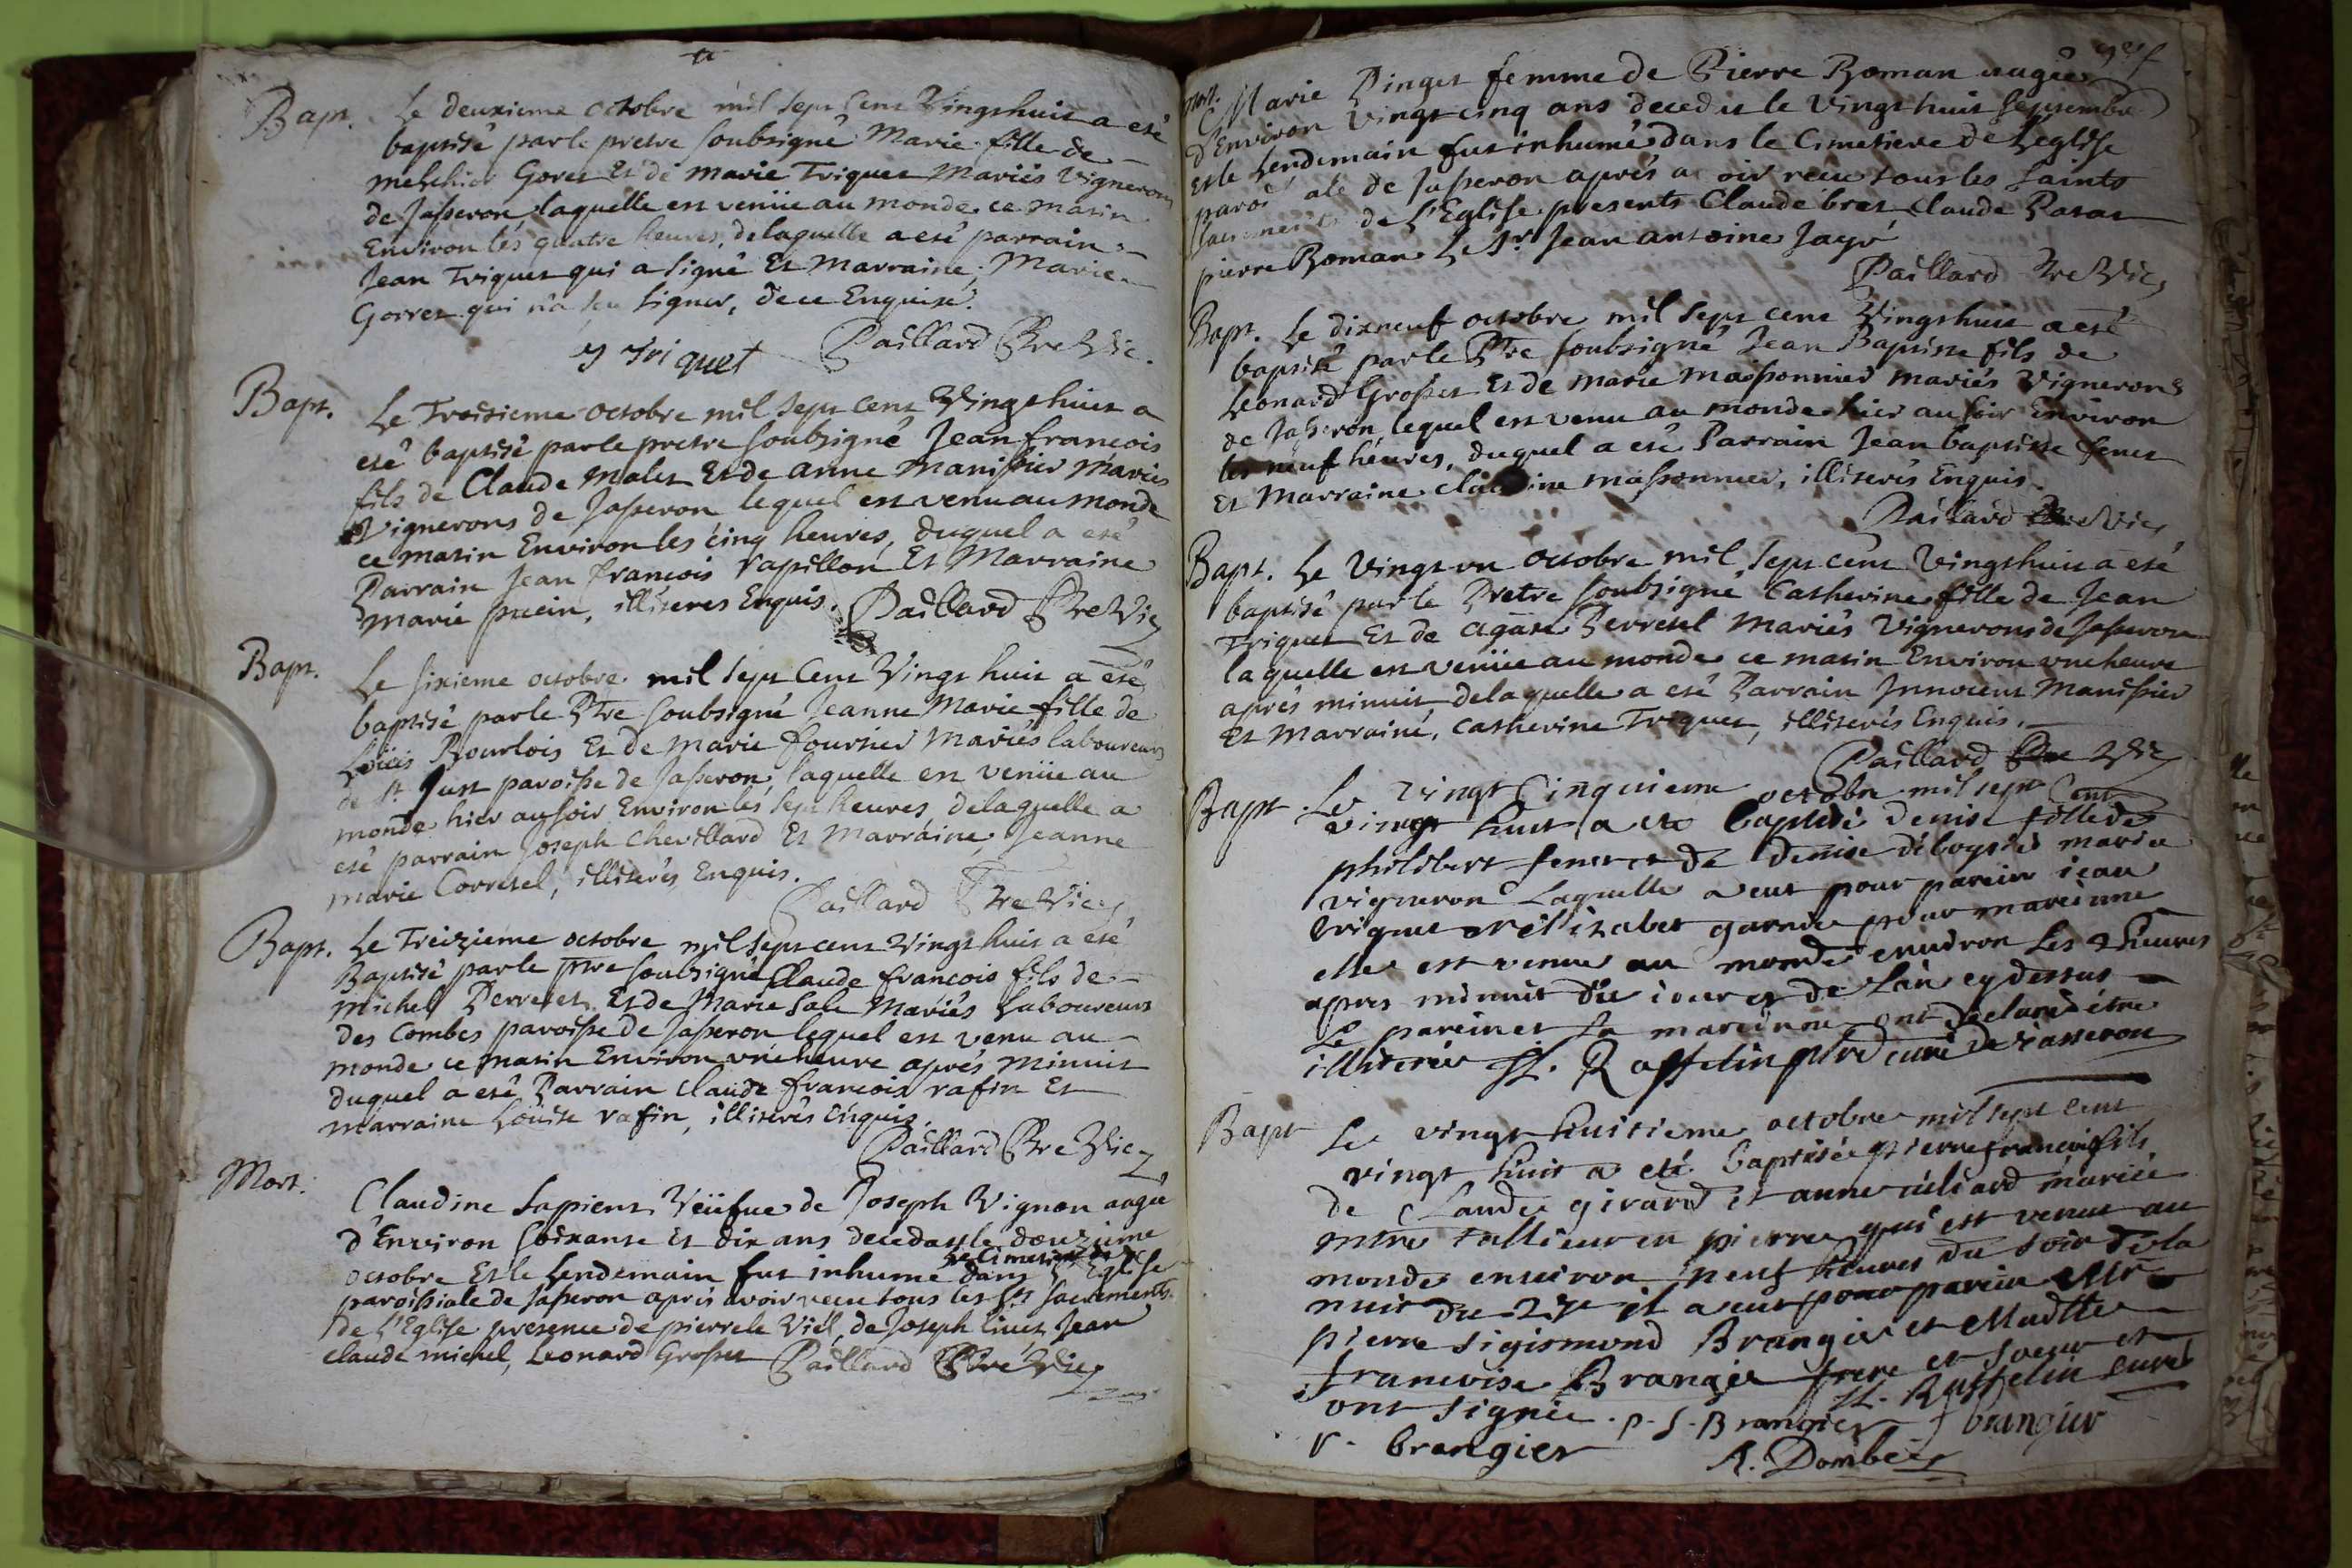 Bapt. Le deuxieme octobre mil sept cent Vingthuit a esté
baptisé par le pretre soubsigné Marie fille de
melchior Goret Et de marie Triquet Mariés vignerons
de Jasseron laquelle est venüe au monde ce matin
Environ les quatre heures, delaquelle a esté parrain
Jean Triquet qui a signé Et Marraine, Marie
Gorret qui n'a sçu signer, de ce Enquise.
Paillard Ptre Vic.
y Triquet
Bapt. Le Troisieme octobre mil sept cent Vingthuit a
esté baptisé par le pretre soubsigné Jean francois
fils de Claude Malet Et de anne Manissier Mariés
Vignerons de Jasseron lequel est venu au monde
ce matin Environ les cinq heures, duquel a esté
Parrain Jean francois rapillon Et Marraine
marie puein, illiteres Enquis. Paillard Ptre Vic
Bapt. Le sixieme octobre mil sept Cent Vingt huit a esté
baptisé par le Ptre soubsigné Jeanne Marie fille de
Loüis Bourlois Et de Marie fournier Mariés laboureurs
de St. Just paroisse de Jasseron, laquelle est venüe au
monde hier au soir Environ les sept heures delaquelle a
esté parrain Joseph Chevillard Et Marraine, Jeanne
marie Corretel, illiterés Enquis.
Paillard Ptre Vic
Bapt. Le Treizieme octobre mil sept cent Vingt huit a esté
Baptisé par le ptre soubsigné Claude francois fils de
michel Perretet Et de Marie Sale Mariés Laboureurs
des Combes paroisse de Jasseron lequel est venu au
monde ce matin Environ une heure aprés Minuit
duquel a esté Parrain Claude francois rafin Et
marraine Loüise rafin, illiterés Enquis.
Paillard Ptre Vic
Mort. Claudine Sapient Veüfue de Joseph Vignon aagée
d'Environ soixante Et dix ans deceda le douzieme
le Cimetiere de
octobre Et le Lendemain fut inhumé dans L'Eglise
paroissiale de Jasseron aprés avoir receu tous les Sts sacrements
de L'Eglise presence de pierre le Viel, de Joseph liuet Jean
claude michel, Leonard Grosset Paillard Ptre Vic
Mort. Marie Pinget femme de Pierre Roman aagée
d'Environ Vingt cinq ans deceder le Vingt huit septembre
Et le Lendemain fut inhumé dans le Cimetiere de Leglise
paroi ale de Jasseron aprés a oir receu tous les saints
sacrements de L'Eglise presents Claude bret claude Patat
pierre Roman Le Sr Jean antoine Jayr
Paillard Ptre Vic
Bapt. Le dixneuf octobre mil sept cent Vingthuit a esté
baptisé par le Ptre soubsigné Jean Baptiste fils de
Leonard Grosset Et de marie massonnier mariés Vignerons
de Jasseron lequel est venu au monde hier au soir Environ
les neuf heures, duquel a esté Parrain Jean baptiste fenet
Et Marraine claudine massonnier, illiterés Enquis.
Paillard Ptre Vic
Bapt. Le Vingt un octobre mil sept cent Vingthuit a esté
baptisé par le Pretre soubsigné Catherine fille de Jean
Triquet Et de agate Perretel Mariés Vignerons de Jasseron
laquelle est venüe au monde ce matin Environ une heure
aprés minuit delaquelle a esté Parrain Innocent Manissier
Et Marraine, catherine Triquet, illiterés Enquis.
Paillard Ptre Vic
Bapt. Le vingt Cinquieme octobre mil sept Cent
vingt huit a ete baptisé denise fille de
philibert fenet et de denise deboysier mariés
vigneron Laquelle a eut pour parein jean
triquet et elizabet garnier pour mareinne
elle est venue au monde environ Les 2 heures
apres minuit du jour et de Lan cy dessus
Le parein et La mareinne ont declaré être
illiterés JL. Raffelin ptre curé de iasseron
Bapt Le vingt huitieme octobre mil sept cent
vingt huit a eté baptisée pierre francois fils
de Claude girard et anne juliard mariée
mtre tallieur en pierre qui est venut au
monde environ neuf heures du soir de la
nuit du 27e il a eut pour parein Mr
pierre Sigismond Brangier et Madlle
francoise Brangier frere et soeur et
ont signée. JL. Raffelin curé
p. S. Brangier f brangier
r. brangier
A. Dombey